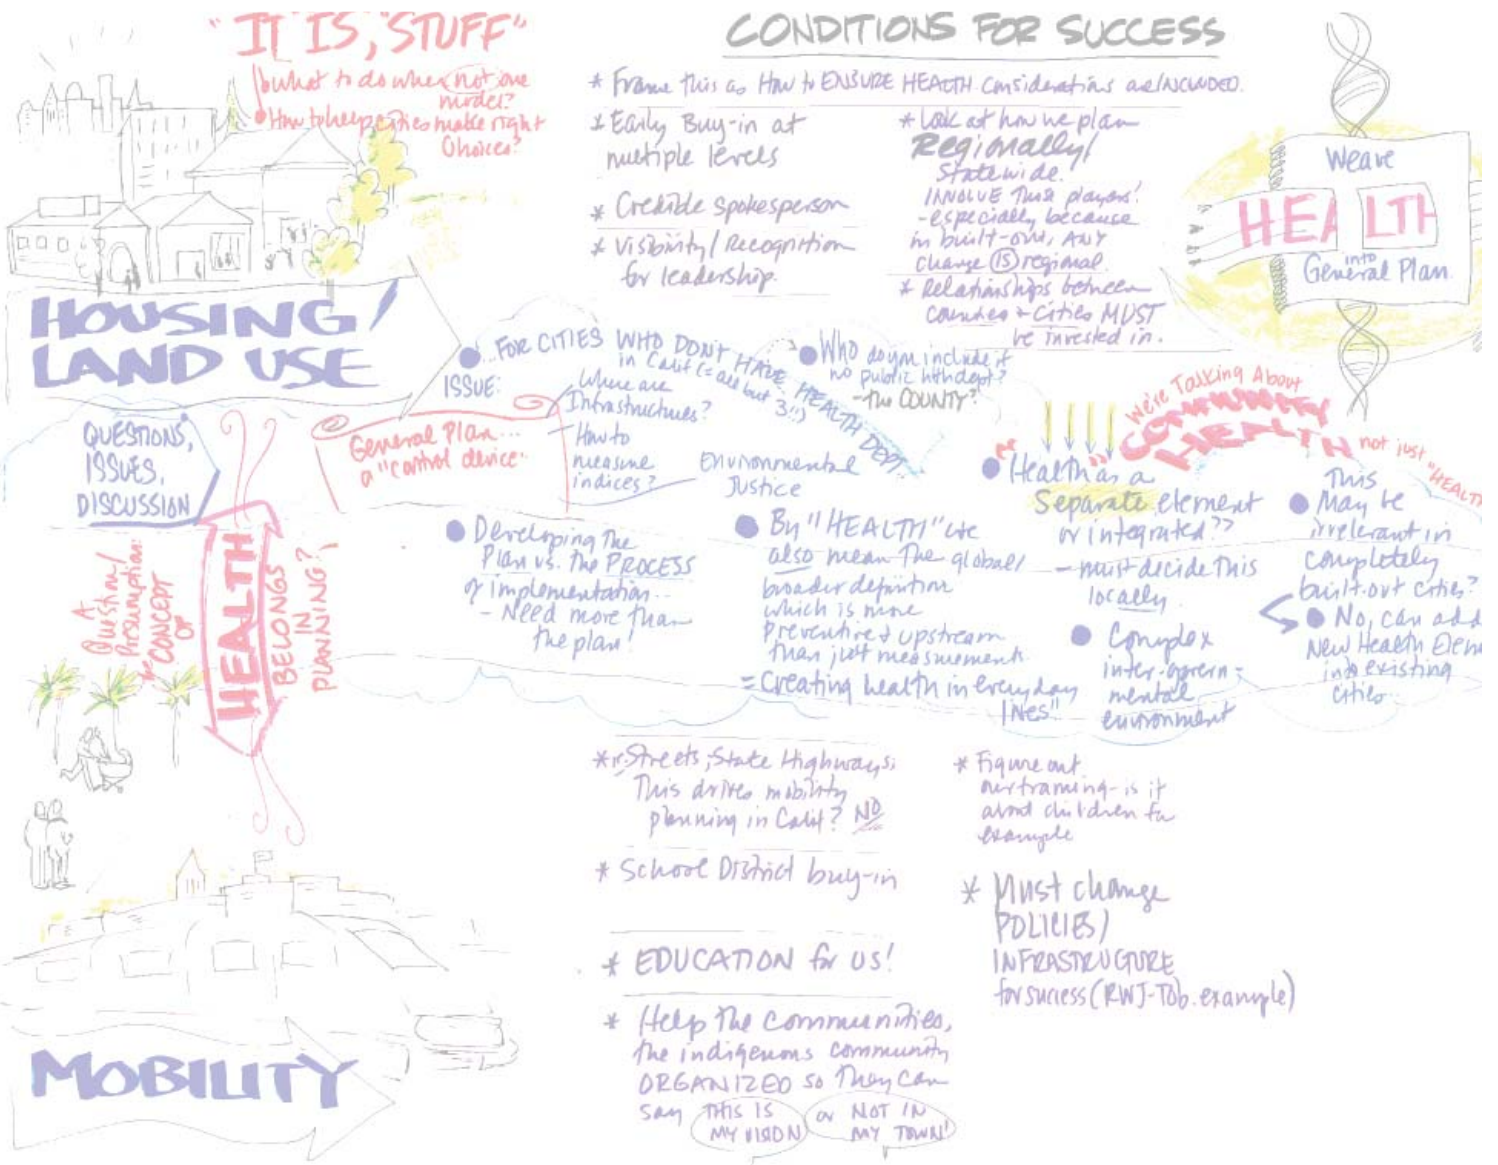 "IT IS, "STUFF"
What to do when not one
model?
How to help cities make right
Choices?
CONDITIONS FOR SUCCESS
* Frame this as How to ENSURE HEALTH Considerations are INCLUDED.
* Early Buy-in at
multiple levels
* Credible spokesperson
* Visibility/Recognition
for leadership.
* Look at how we plan
Regionally/
Statewide.
INVOLVE These players!
- especially because
in built-out, ANY
change IS regional.
* Relationships between
counties + Cities MUST
be invested in.
Weave
HEALTH
into
General Plan.
HOUSING/
LAND USE
...FOR CITIES WHO DON'T HAVE HEALTH DEPT
in Calif (= all but 3!!)
ISSUE:
Where are
Infrastructures?
How to
measure
indices?
Who do you include if
no public hlth dept?
- The COUNTY?
We're Talking About
COMMUNITY
HEALTH
not just "HEALTH
QUESTIONS,
ISSUES,
DISCUSSION
General Plan...
a "control device"
Environmental
Justice
"Health" as a
Separate element
or integrated??
- must decide this
locally.
This
May be
irrelevant in
completely
built-out cities?
No, can add
New Health Elem
into existing
cities.
A
Question/
Presumption:
The CONCEPT
OF
HEALTH
BELONGS
IN
PLANNING?
Developing the
Plan vs. the PROCESS
of implementation..
- Need more than
the plan!
By "HEALTH" we
also mean the global/
broader definition
which is more
Preventive + upstream
than just measurements.
= "Creating health in everyday
lives"
Complex
inter-govern-
mental
environment
* Streets, State Highways:
This drives mobility
planning in Calif? NO
* School District buy-in
* EDUCATION for US!
* Help the communities,
the indigenous community
ORGANIZED so They can
say THIS IS
MY VISION
or NOT IN
MY TOWN!
* Figure out
our framing - is it
about children for
example
* Must change
POLICIES/
INFRASTRUCTURE
for success (RWJ-Tob. example)
MOBILITY